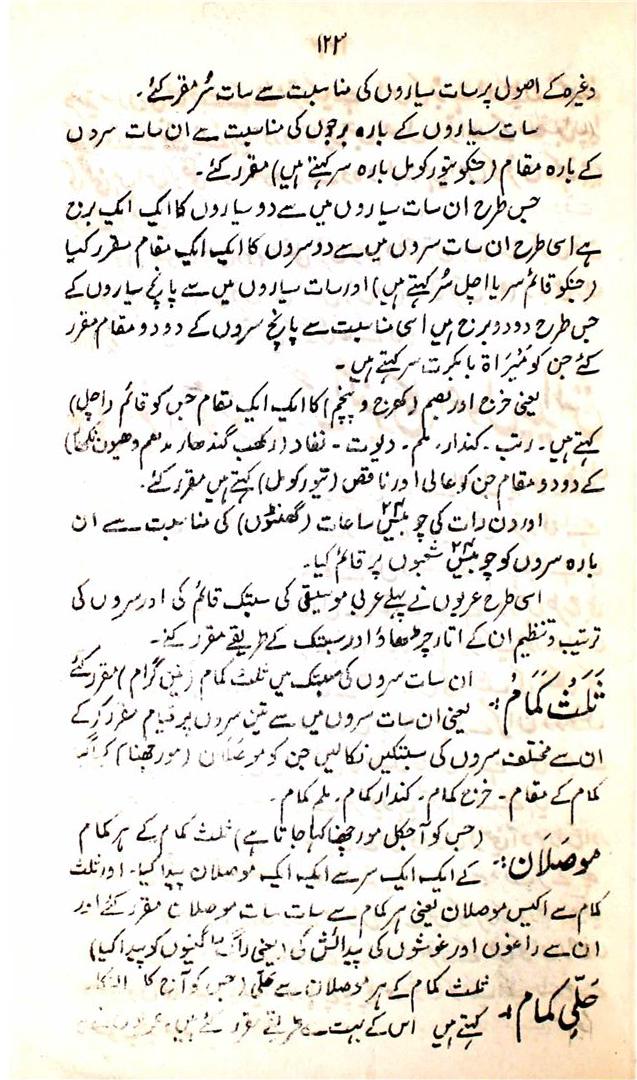 ۱۲۳
وغیرہ کے اصول پر سات سیاروں کی مناسبت سے سات سُر مقرر کئے۔
سات سیاروں کے بارہ برجوں کی مناسبت سے ان سات سروں
کے بارہ مقام (جنکو تیور کومل بارہ سر کہتے ہیں) مقرر کئے۔
جس طرح ان سات سیاروں میں سے دو سیاروں کا ایک ایک برج
ہے اسی طرح ان سات سروں میں سے دو سروں کا ایک ایک مقام مقرر کیا
(جنکو قائم سر یا اچل سُر کہتے ہیں) اور سات سیاروں میں سے پانچ سیاروں کے
جس طرح دو دو برج ہیں اسی مناسبت سے پانچ سروں کے دو دو مقام مقرر
کئے جن کو مُبَرّاۃ یا بکرت سر کہتے ہیں۔
یعنی خرج اور بصم (کھرج و پنچم) کا ایک ایک مقام جس کو قائم (اچل)
کہتے ہیں۔ رتب۔ کندار۔ ملم۔ دلوت۔ نفاد (رکھب گندھار مدھم دھیوت نکھاد)
کے دو دو مقام جن کو عالی اور ناقص (تیور کومل) کہتے ہیں مقرر کئے۔
اور دن رات کی چوبیس ۲۴ ساعات (گھنٹوں) کی مناسبت سے ان
بارہ سروں کو چوبیس ۲۴ شعبوں پر قائم کیا۔
اسی طرح عربوں نے پہلے عربی موسیقی کی سبتک قائم کی اور سروں کی
ترتیب و تنظیم ان کے اتار چڑھاؤ اور سبتک کے طریقے مقرر کئے۔
ثلث کمام :۔ ان سات سروں کی سبتک میں ثلث کمام (تین گرام) مقرر کئے
یعنی ان سات سروں میں سے تین سروں پر قیام مقرر کر کے
ان سے مختلف سروں کی سبتکیں نکالیں جن کو موصلان (مورچھنا)
کمام کے مقام۔ خرج کمام۔ کندار کمام۔ ملم کمام۔
موصَلَان :۔ (جس کو آجکل مورچھنا کہا جاتا ہے) ثلث کمام کے ہر کمام
کے ایک ایک سر سے ایک ایک موصلان پیدا کیا۔ اور ثلث
کمام سے اکیس موصلان یعنی ہر کمام سے سات سات موصلان مقرر کئے اور
ان سے راغوں اور غوشوں کی پیدائش کی (یعنی راگ راگنیوں کو پیدا کیا)
حَلّیِ کمام :۔ ثلث کمام کے ہر موصلان سے حلّی (جس کو آج کل
کہتے ہیں اس کے بہت سے طریقے مقرر کئے ہیں